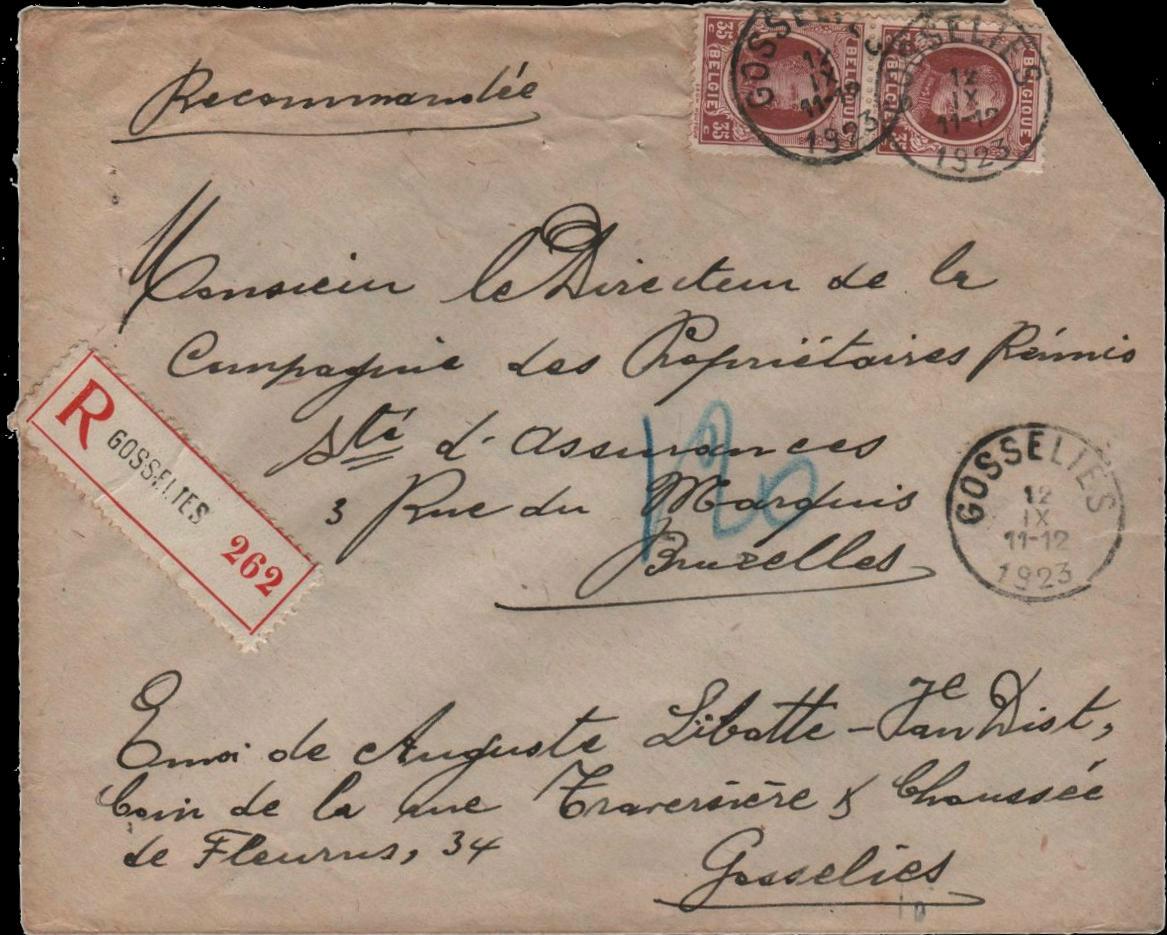 Recommandée
35 c BELGIE BELGIQUE 35 c
35 c BELGIE BELGIQUE
GOSSELIES
12
IX
11-12
1923
GOSSELIES
12
IX
11-12
1923
Monsieur le Directeur de la
Compagnie des Propriétaires Réunis
Sté d'assurances
3 Rue du Marquis
Bruxelles
120
R GOSSELIES 262
GOSSELIES
12
IX
11-12
1923
Envoi de Auguste Libotte - Dist,
Coin de la rue Traversière & Chaussée
de Fleurus, 34
Gosselies